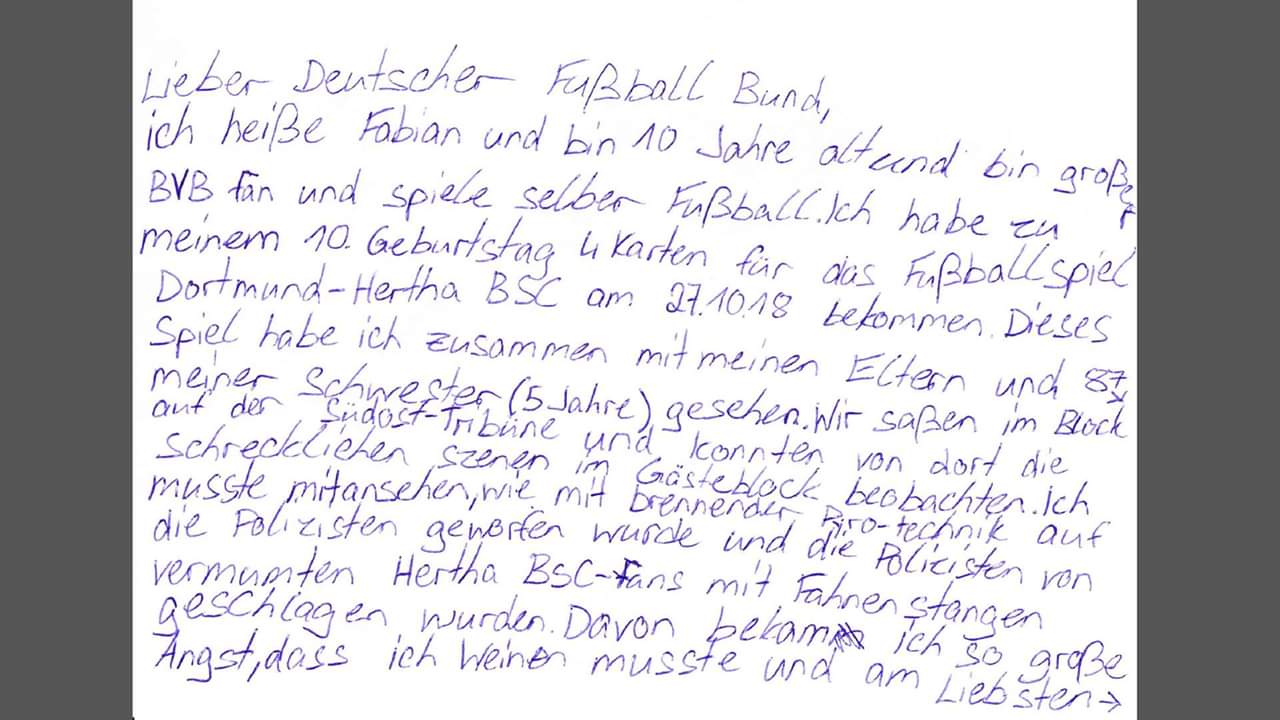 Lieber Deutscher Fußball Bund,
ich heiße Fabian und bin 10 Jahre alt und bin großer
BVB fan und spiele selber Fußball. Ich habe zu
meinem 10. Geburtstag 4 Karten für das Fußballspiel
Dortmund-Hertha BSC am 27.10.18 bekommen. Dieses
Spiel habe ich zusammen mit meinen Eltern und
meiner Schwester (5 Jahre) gesehen. Wir saßen im Block 87
auf der Südost-Tribüne und konnten von dort die
schrecklichen szenen im Gästeblock beobachten. ich
musste mitansehen, wie mit brennender Pyro-technik auf
die Polizisten geworfen wurde und die Polizisten von
vermumten Hertha BSC-Fans mit Fahnenstangen
geschlagen wurden. Davon bekam ich so große
Angst, dass ich weinen musste und am Liebsten →